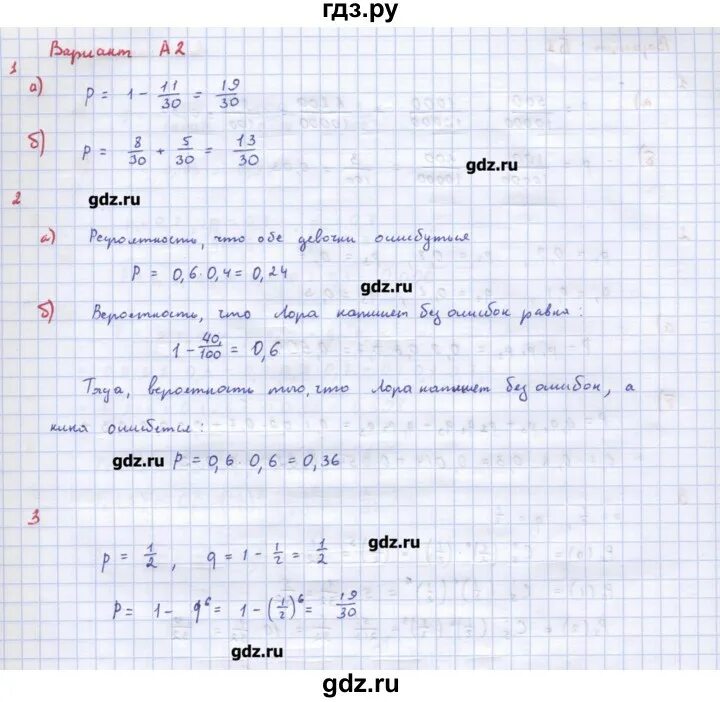 гдз.ру
Вариант А2
1
а) p = 1 - 11/30 = 19/30
б) p = 8/30 + 5/30 = 13/30
gdz.ru
2
gdz.ru
а) Вероятность, что обе девочки ошибуться
P = 0,6·0,4 = 0,24
gdz.ru
б) Вероятность, что Лора напишет без ошибок равна:
1 - 40/100 = 0,6
вероятность того, что Лора напишет без ошибок, а
нина ошибется:
gdz.ru P = 0,6·0,6 = 0,36
3
gdz.ru
p = 1/2, q = 1 - 1/2 = 1/2
P = 1 - q⁶ = 1 - (1/2)⁶ = 19/30
gdz.ru
gdz.ru